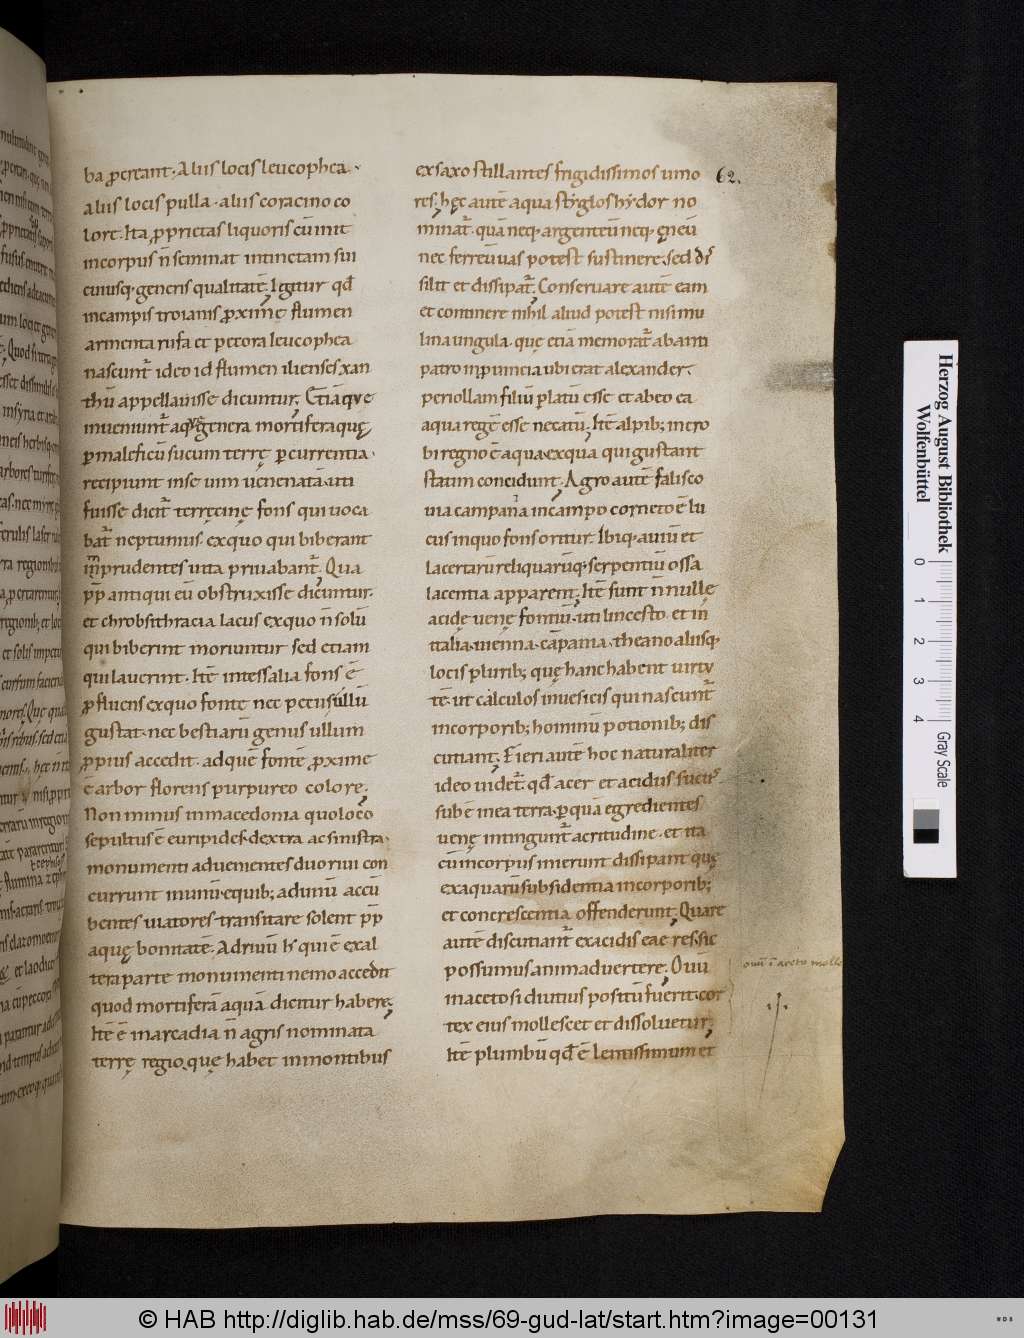 ba p̱creant. Aliis locis leucophea.
aliis locis pulla. aliis coracino co
lore. Ita p̱prietas liquoris cū init
incorpus n̄ seminat intinctam sui
cuiusq; generis qualitatē. Igitur qđ
incampis troianis p̱xime flumen
armenta rufa et pecora leucophea
nascunt̄ ideo id flumen ilienses xan
thū appellauisse dicuntur. Etiā quę
inueniunt̄ aquę genera mortifera quę
p̱maleficū sucum terrę p̱currentia.
recipiunt inse uim uenenatā. uti
fuisse dicit̄ terręcinę fons qui uoca
bat̄ neptunius. exquo qui biberant
inprudentes uita priuabant̄. Qua
pp̄ antiqui eū obstruxisse dicuntur.
et chrobsithracia lacus exquo n̄ solū
qui biberint moriuntur sed etiam
qui lauerint. Itē intessalia fons ē
p̱fluens exquo fonte nec pecus ullū
gustat. nec bestiarū genus ullum
p̱pius accedit. adquē fontē p̱xime
ē arbor florens purpureo colore.
Non minus inmacedonia quoloco
sepultus ē euripides. dextra ac sinistra.
monumenti aduenientes duo riui con
currunt inunū equib; adunū accū
bentes uiatores transitare solent pp̄
aquę bonitatē. Adriuū h̄ qui ē exal
tera parte monumenti nemo accedit
quod mortiferā aquā dicitur habere.
Itē ē inarcadia n̄ agris nominata
terrę regio. quę habet inmontibus
exsaxo stillantes frigidissimos umo
62.
res. hęc autē aqua stygloshydor no
minat̄. quā neq; argenteū neq; ęneū
nec ferreū uas potest sustinere. sed dis
silit et dissipat̄. Conseruare autē eam
et continere nihil aliud potest nisi mu
lina ungula. quę etiā memorat̄ abanti
patro inp̱uincia ubi erat alexander.
periollam filiū p̱latū esse et abeo ea
aqua regē esse necatū. Itē alpib; incro
bi regno ē aqua exqua qui gustant
statim concidunt. Agro autē falisco
uia campana incampo corneto ē lu
cus inquo fons oritur. Ibiq; auiū et
lacertarū reliquarūq; serpentiū ossa
iacentia apparent. Itē sunt n̄nullę
acidę uenę fontiū. uti lincesto. et in
italia. uienna. cāpania. theano aliisq;
locis plurib; quę hanc habent uirtu
tē. ut calculos inuesicis qui nascunt̄
incorporib; hominū potionib; dis
cutiant. Fieri autē hoc naturaliter
ideo uidet̄. qđ acer et acidus sucus
sub ē inea terra. p̱ quā egredientes
uenę intingunt̄ acritudine. et ita
cū incorpus inierunt dissipant quę
exaquarū subsidentia incorporib;
et concrescentia offenderunt. Quare
autē discutiant̄ exacidis eae res. sic
possumus animaduertere. Ouū
inaceto si diutius positū fuerit. cor
tex eius mollescet et dissoluetur.
Itē plumbū qđ ē lentissimum et
ouū ī aceto molle
Herzog August Bibliothek
Wolfenbüttel
0 1 2 3 4 Gray Scale
© HAB http://diglib.hab.de/mss/69-gud-lat/start.htm?image=00131